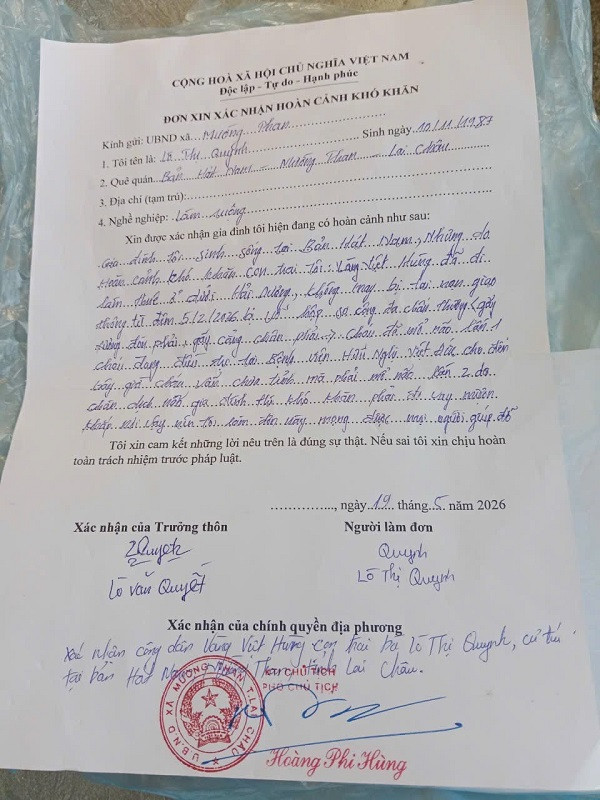 CỘNG HOÀ XÃ HỘI CHỦ NGHĨA VIỆT NAM
Độc lập - Tự do - Hạnh phúc
ĐƠN XIN XÁC NHẬN HOÀN CẢNH KHÓ KHĂN
Kính gửi: UBND xã Mường Than
1. Tôi tên là: Lò Thị Quỳnh Sinh ngày 10/11/1987
2. Quê quán Bản Hát Nam - Mường Than - Lai Châu
3. Địa chỉ (tạm trú):
4. Nghề nghiệp: Làm ruộng
Xin được xác nhận gia đình tôi hiện đang có hoàn cảnh như sau:
Gia đình tôi sinh sống tại Bản Hát Nam, Nhưng do
Hoàn cảnh khó khăn con trai tôi Vàng Việt Hùng đã đi
làm thuê ở dưới Hải Dương, không may bị tai nạn giao
thông từ đêm 5/2/2026 bị đa chấn thương gãy
phải, gãy cẳng chân phải cháu đã mổ não lần 1
cháu đang điều trị tại Bệnh viện Hữu Nghị Việt Đức cho đến
bây giờ cháu vẫn chưa tỉnh mà phải mổ não lần 2 do
não gia đình thì khó khăn phải đi vay mượn
khắp nơi vậy nên tôi làm đơn này mong được mọi người giúp đỡ
Tôi xin cam kết những lời nêu trên là đúng sự thật. Nếu sai tôi xin chịu hoàn
toàn trách nhiệm trước pháp luật.
, ngày 19 tháng 5 năm 2026
Xác nhận của Trưởng thôn Người làm đơn
Quyết Quỳnh
Lò Văn Quyết Lò Thị Quỳnh
Xác nhận của chính quyền địa phương
Xác nhận công dân Vàng Việt Hùng con trai bà Lò Thị Quỳnh, cư trú
tại bản Hát Nam, Mường Than, tỉnh Lai Châu.
CHỦ TỊCH
PHÓ CHỦ TỊCH
U.B.N.D XÃ MƯỜNG THAN T.LAI CHÂU
Hoàng Phi Hùng